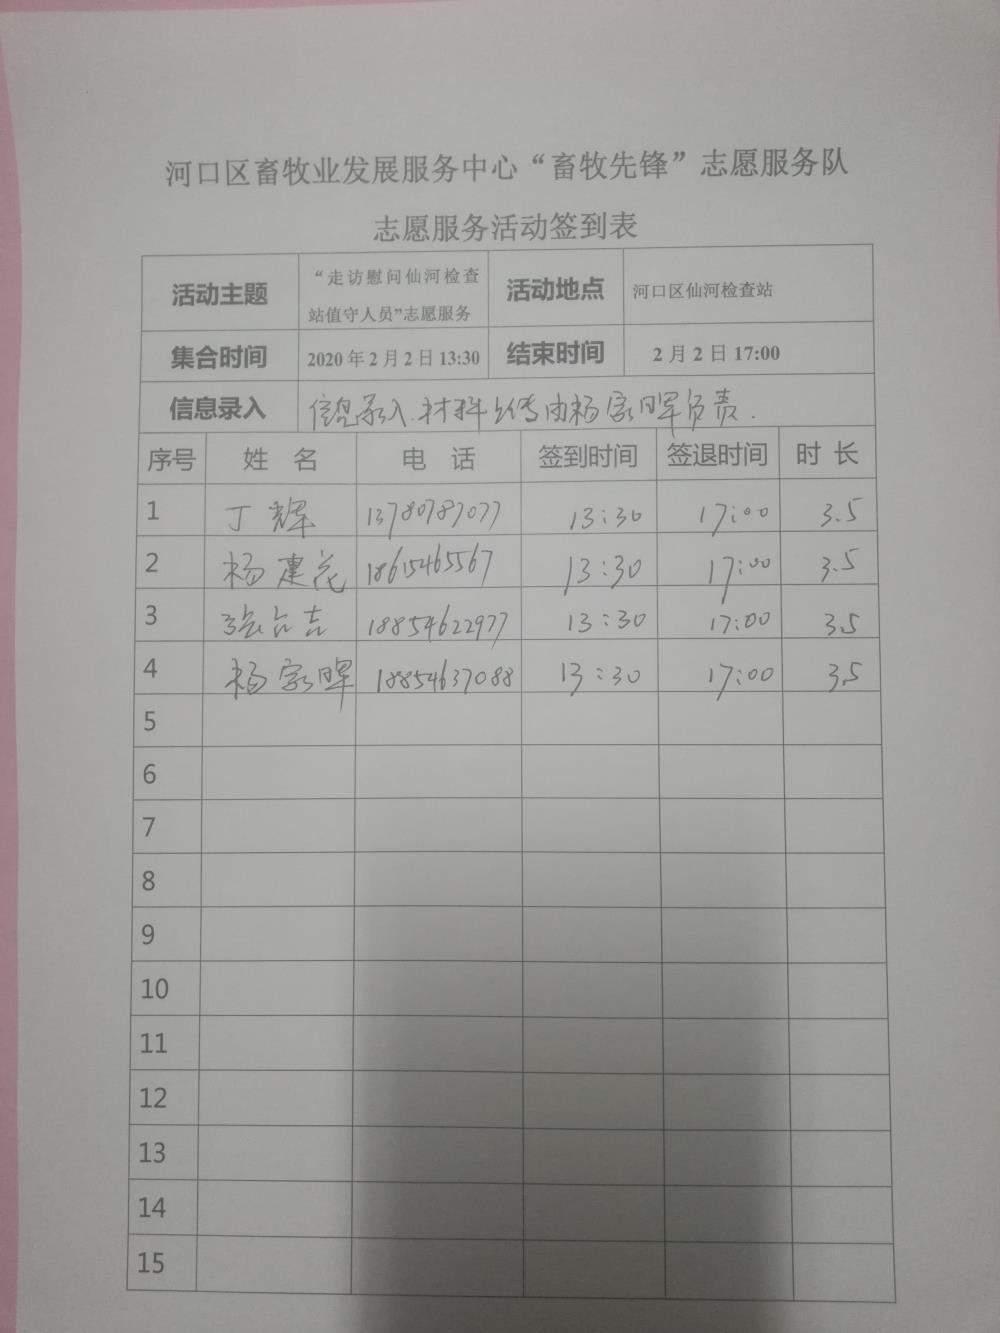 河口区畜牧业发展服务中心“畜牧先锋”志愿服务队
志愿服务活动签到表
活动主题 “走访慰问仙河检查站值守人员”志愿服务 活动地点 河口区仙河检查站
集合时间 2020年2月2日13:30 结束时间 2月2日17:00
信息录入 信息录入.材料上传由杨家晖负责.
序号 姓 名 电 话 签到时间 签退时间 时 长
1 丁辉 13780787077 13:30 17:00 3.5
2 杨建花 18615465567 13:30 17:00 3.5
3 张占吉 18854622977 13:30 17:00 3.5
4 杨家晖 18854637088 13:30 17:00 3.5
5
6
7
8
9
10
11
12
13
14
15